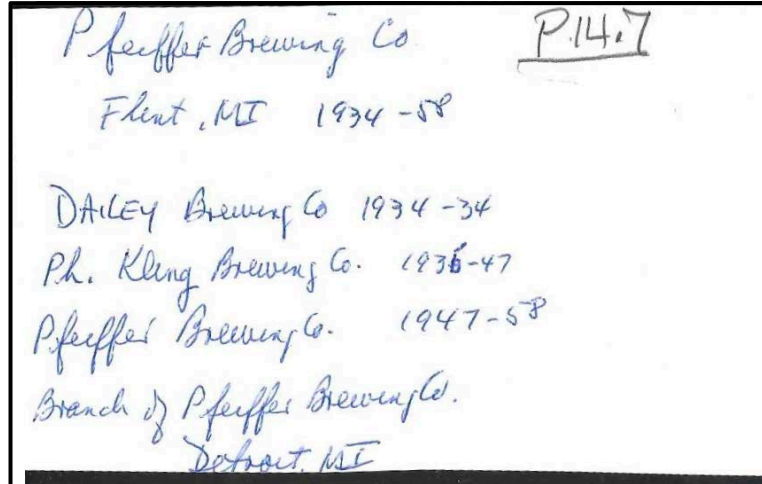 Pfeiffer Brewing Co P.14.7
Flint, MI 1934-58
DAILEY Brewing Co 1934-34
Ph. Kling Brewing Co. 1936-47
Pfeiffer Brewing Co. 1947-58
Branch of Pfeiffer Brewing Co.
Detroit, MI